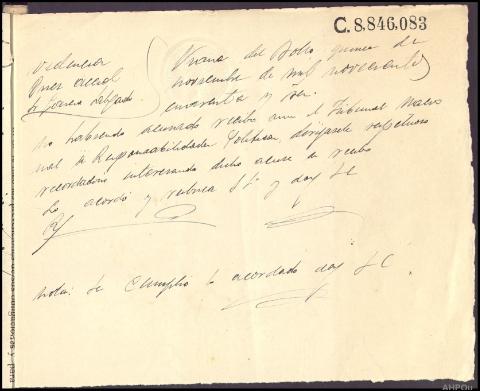 C.8,846,083
Providencia
Juez accal
Sr Garcia Delgado.
Viana del Bollo quince de
noviembre de mil novecientos
cuarenta y tres.
No habiendo acusado recibo aun el Tribunal Nacio
nal de Responsabilidades Politicas, dirijase respetuoso
recordatorio interesando dicho acuse de recibo
Lo acordó y rubrica S Sª y doy fé
Nota: Se cumplió lo acordado doy fé.
AHPOu